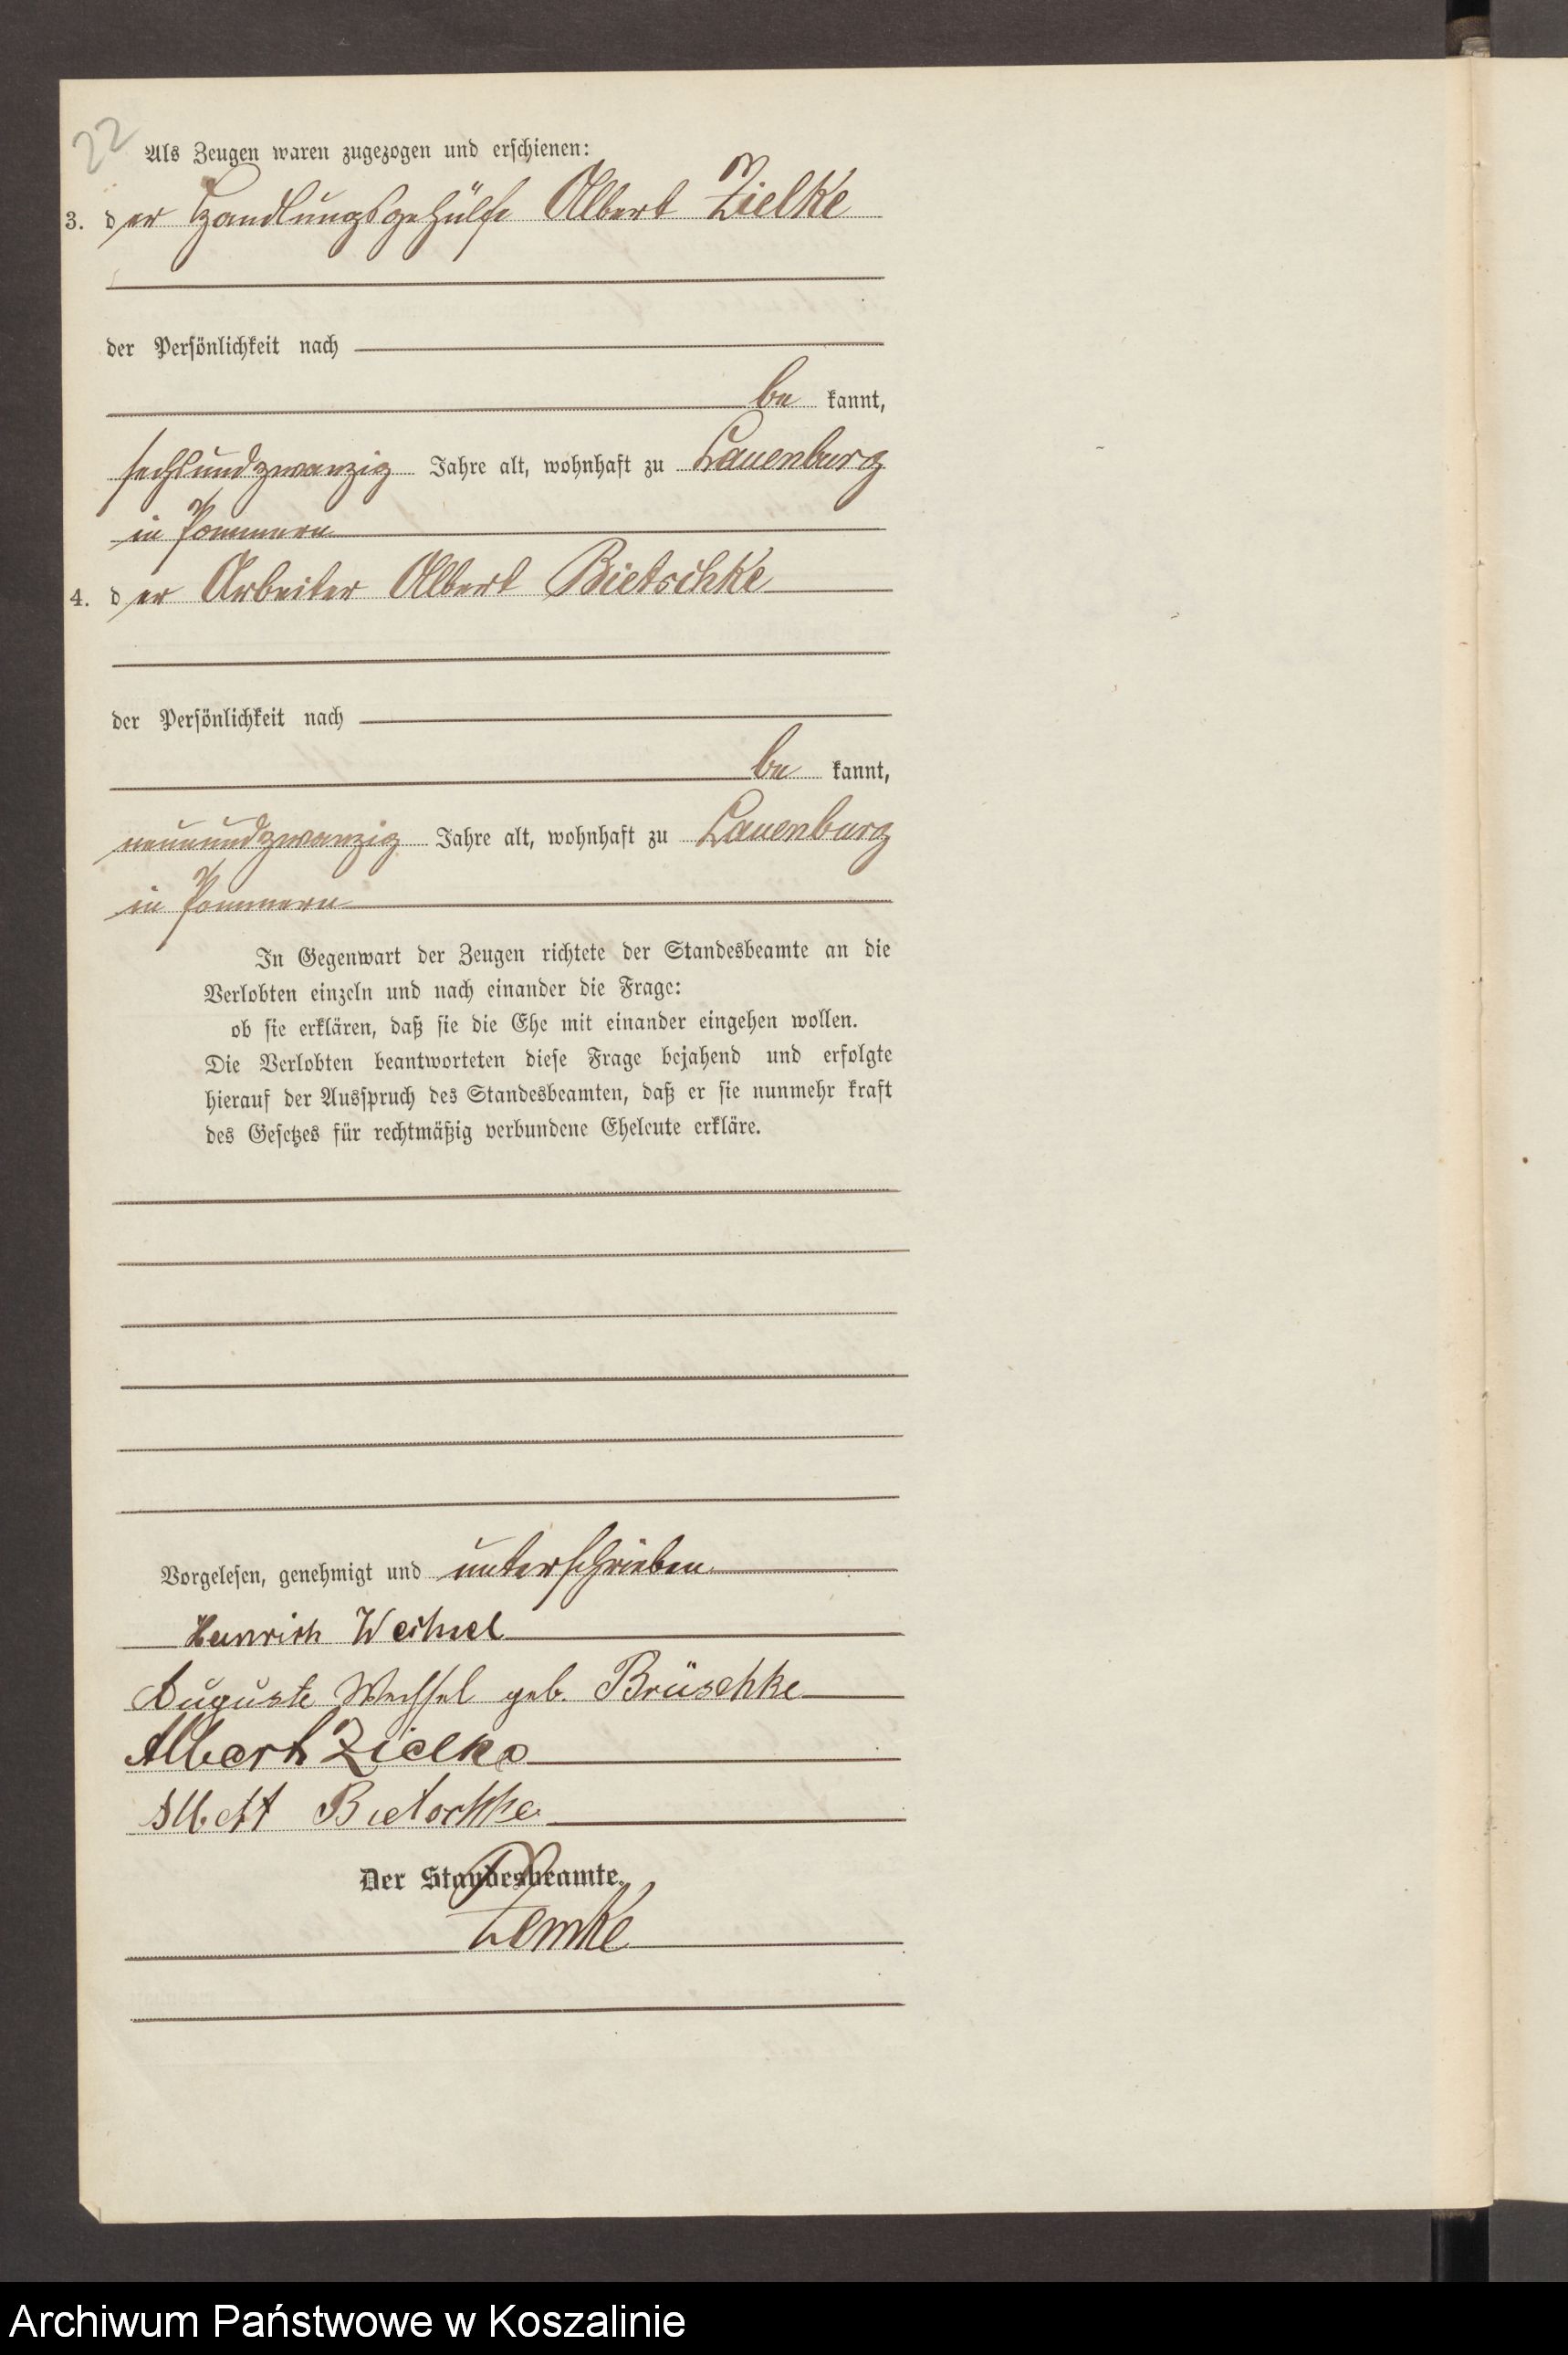 22
Als Zeugen waren zugezogen und erschienen:
3. der Handlungsgehülfe Albert Zielke
der Persönlichkeit nach
be kannt,
sechsundzwanzig Jahre alt, wohnhaft zu Lauenburg
in Pommern
4. der Arbeiter Albert Bietschke
der Persönlichkeit nach
be kannt,
neunundzwanzig Jahre alt, wohnhaft zu Lauenburg
in Pommern
In Gegenwart der Zeugen richtete der Standesbeamte an die
Verlobten einzeln und nach einander die Frage:
ob sie erklären, daß sie die Ehe mit einander eingehen wollen.
Die Verlobten beantworteten diese Frage bejahend und erfolgte
hierauf der Ausspruch des Standesbeamten, daß er sie nunmehr kraft
des Gesetzes für rechtmäßig verbundene Eheleute erkläre.
Vorgelesen, genehmigt und unterschrieben
Heinrich Wechsel
Auguste Wechsel geb. Brüschke
Albert Zielke
Albert Bietschke
Der Standesbeamte.
Zemke
Archiwum Państwowe w Koszalinie